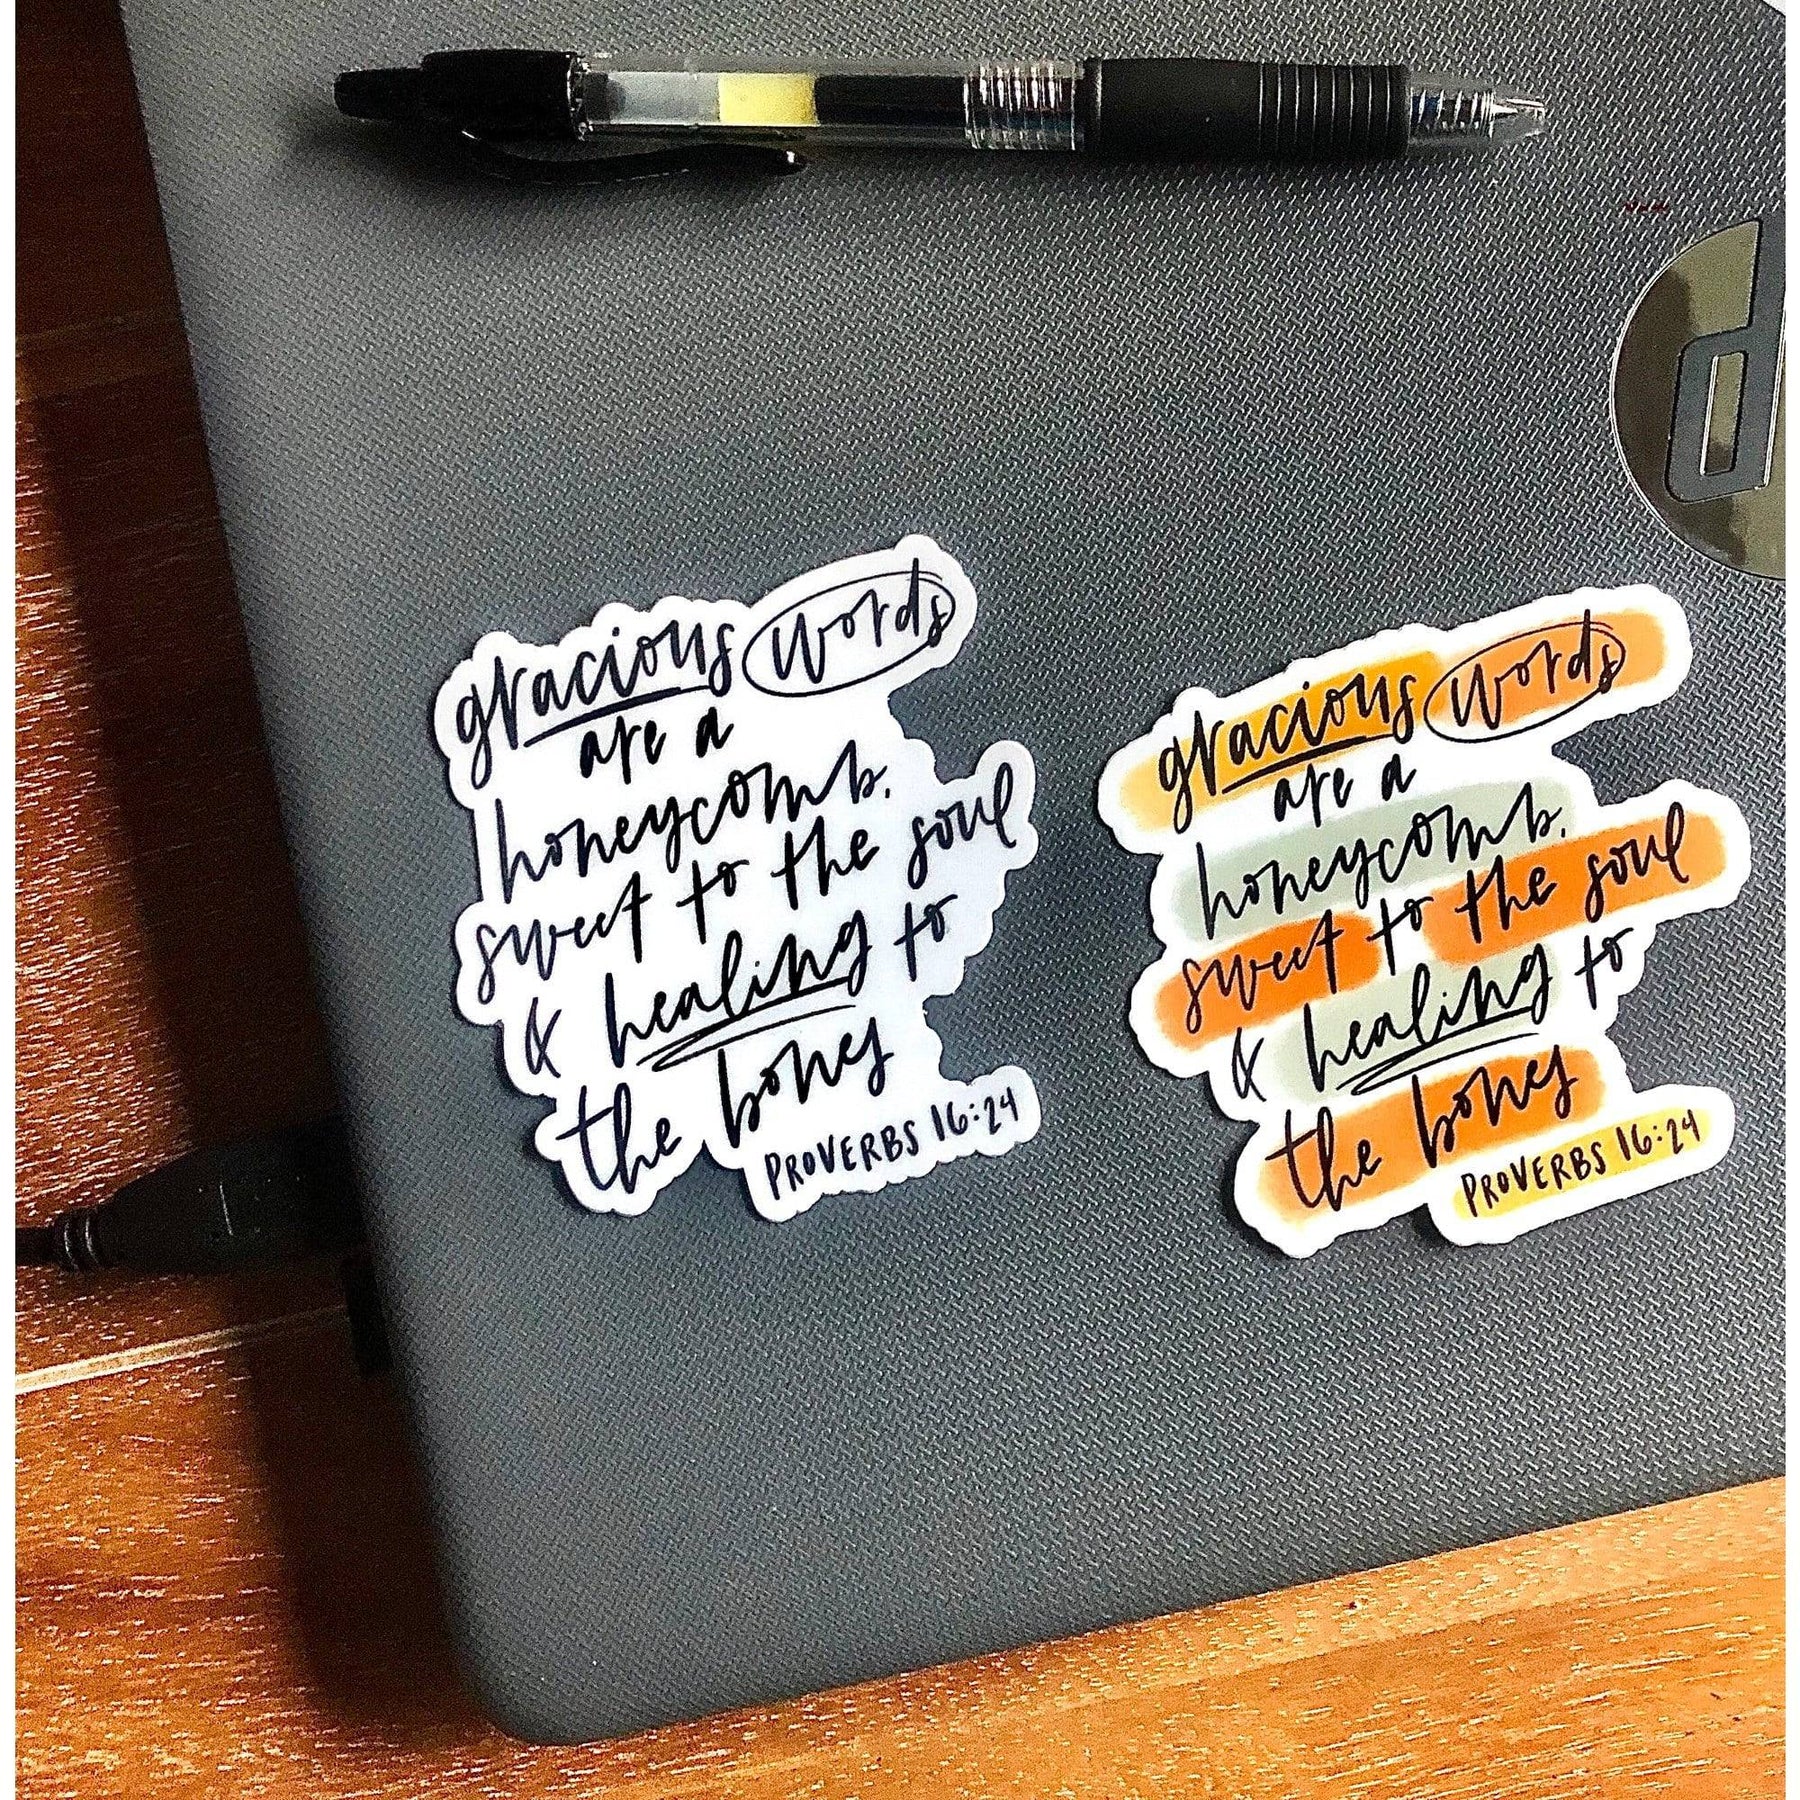 gracious words
are a
honeycomb.
sweet to the soul
& healing to
the bones
PROVERBS 16:24
gracious words
are a
honeycomb.
sweet to the soul
& healing to
the bones
PROVERBS 16:24